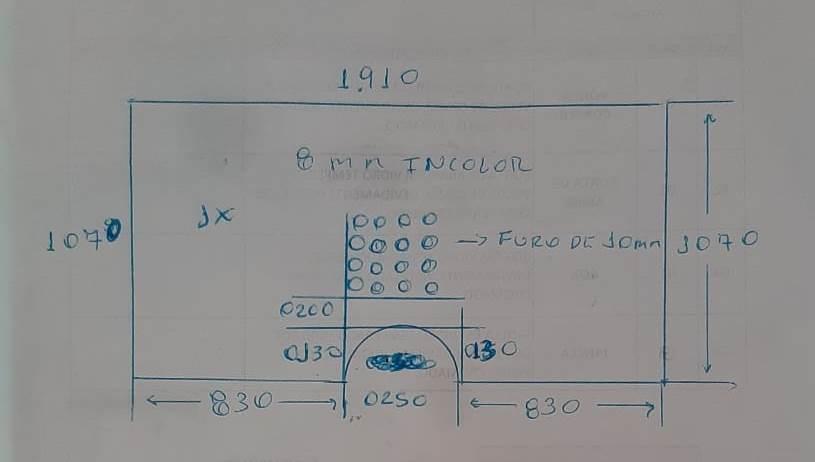 1.910
8 mm INCOLOR
1x
1070
→ FURO DE 10mm
1070
0200
0130
0130
830
0250
830